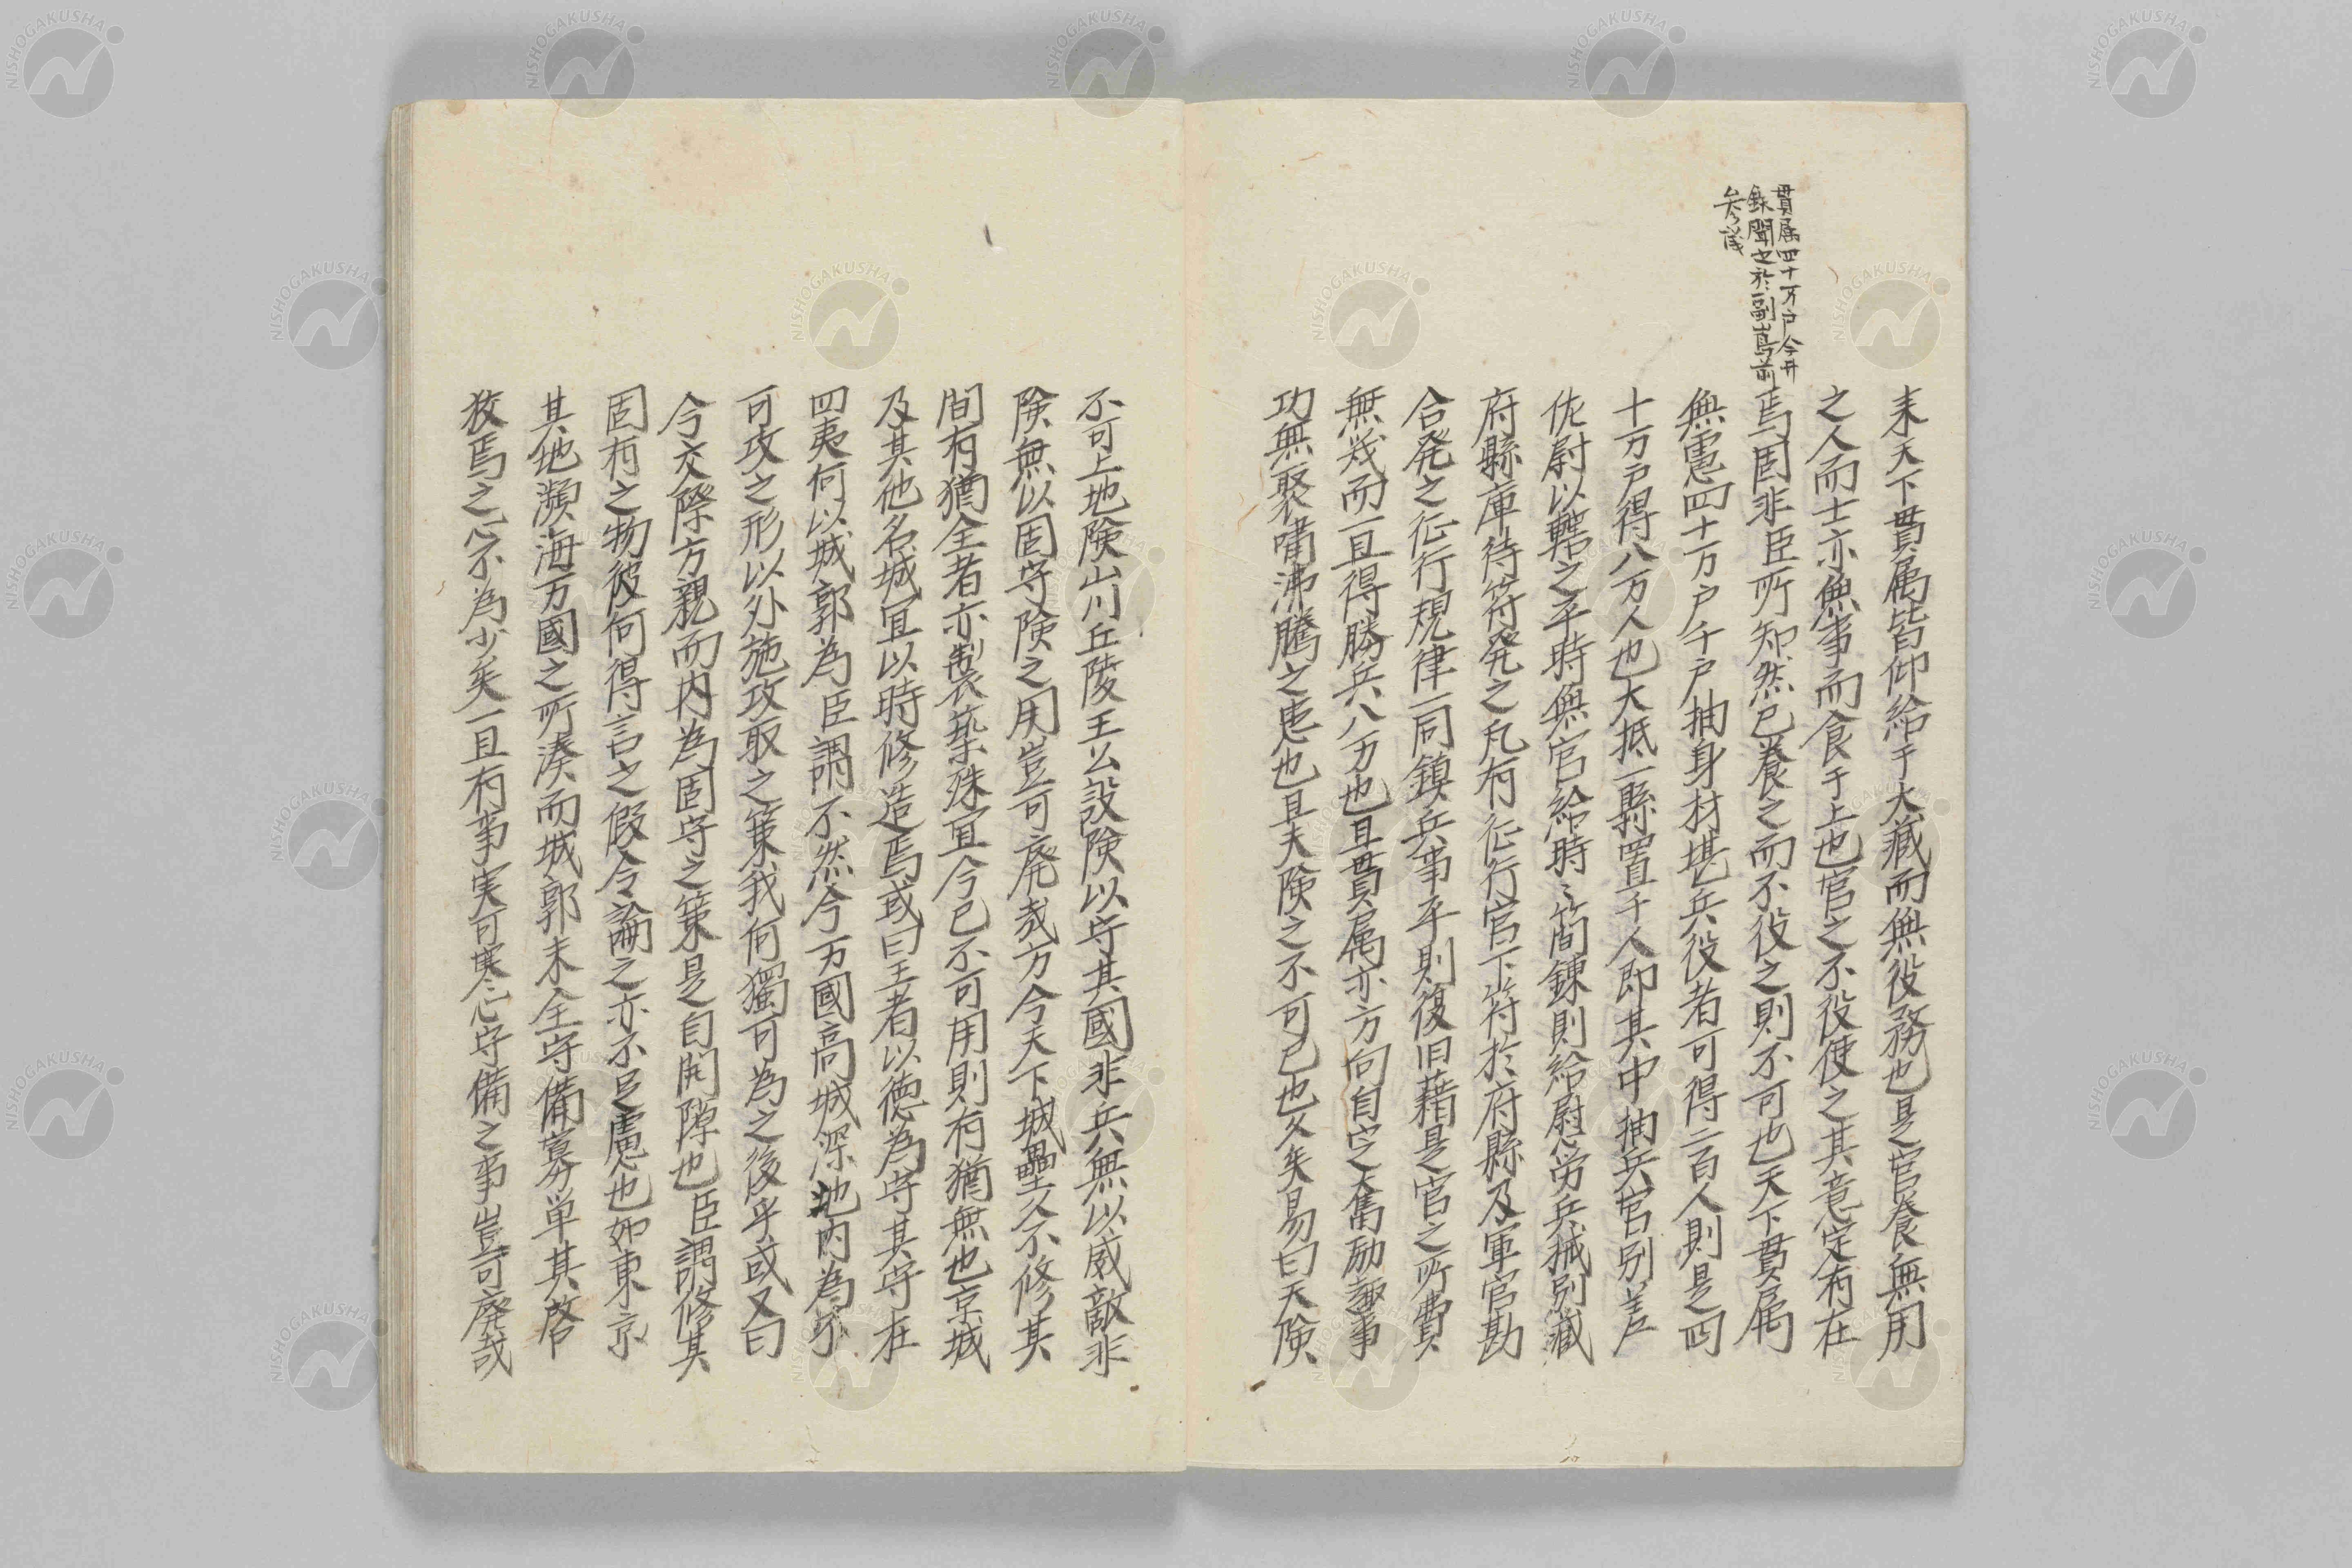 貫属四十万戸今井
録聞之於副嶌前
参議
未天下貫属皆仰給于大蔵而無役務也是官養無用
之人而士亦無事而食于上也官之不役使之其意定有在
焉固非臣所知然已養之而不役之則不可也天下貫属
無慮四十万戸千戸抽身材堪兵役者可得二百人則是四
十万戸得八万人也大抵一縣置千人即其中抽兵官別差
佐尉以轄之平時無官給時々簡錬則給慰労兵械別蔵
府縣庫待符発之凡有征行官下符於府縣及軍官勘
合発之征行規律一同鎮兵事卒則復旧藉是官之所費
無幾而一旦得勝兵八万也且貫属亦方向自定大奮励趣事
功無聚嘯沸騰之患也且夫険之不可已也久矣易曰天険
不可上地険山川丘陵王公設険以守其國非兵無以威敵非
険無以固守険之用豈可廃哉方今天下城壘久不修其
間有猶全者亦製築殊宜今已不可用則有猶無也京城
及其他名城宜以時修造焉或曰王者以徳為守其守在
四夷何以城郭為臣謂不然今万國高城深池内為不
可攻之形以外施攻取之策我何獨可為之後乎或又曰
今交際方親而内為固守之策是自開隙也臣謂修其
固有之物彼何得言之假令論之亦不足慮也如東京
其地瀕海万國之所湊而城郭未全守備寡単其啓
狡焉之心不為少矣一旦有事実可寒心守備之事豈可廃哉
NISHOGAKUSHA